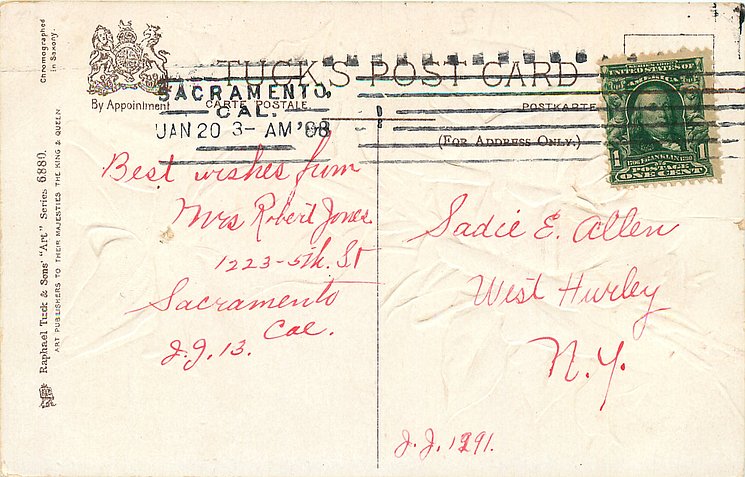 Chromographed
in Saxony.
By Appointment
TUCK'S POST CARD
CARTE POSTALE
POSTKARTE
(FOR ADDRESS ONLY.)
SACRAMENTO,
CAL.
JAN 20 3-AM '08
UNITED STATES OF
AMERICA
1 FRANKLIN 1
POSTAGE
ONE CENT
Raphael Tuck & Sons' "Art" Series 6880.
ART PUBLISHERS TO THEIR MAJESTIES THE KING & QUEEN
Best wishes from
Mrs Robert Jones
1223-5th. St
Sacramento
Cal.
J.J. 13.
Sadie E. Allen
West Hurley
N.Y.
J.J. 1291.